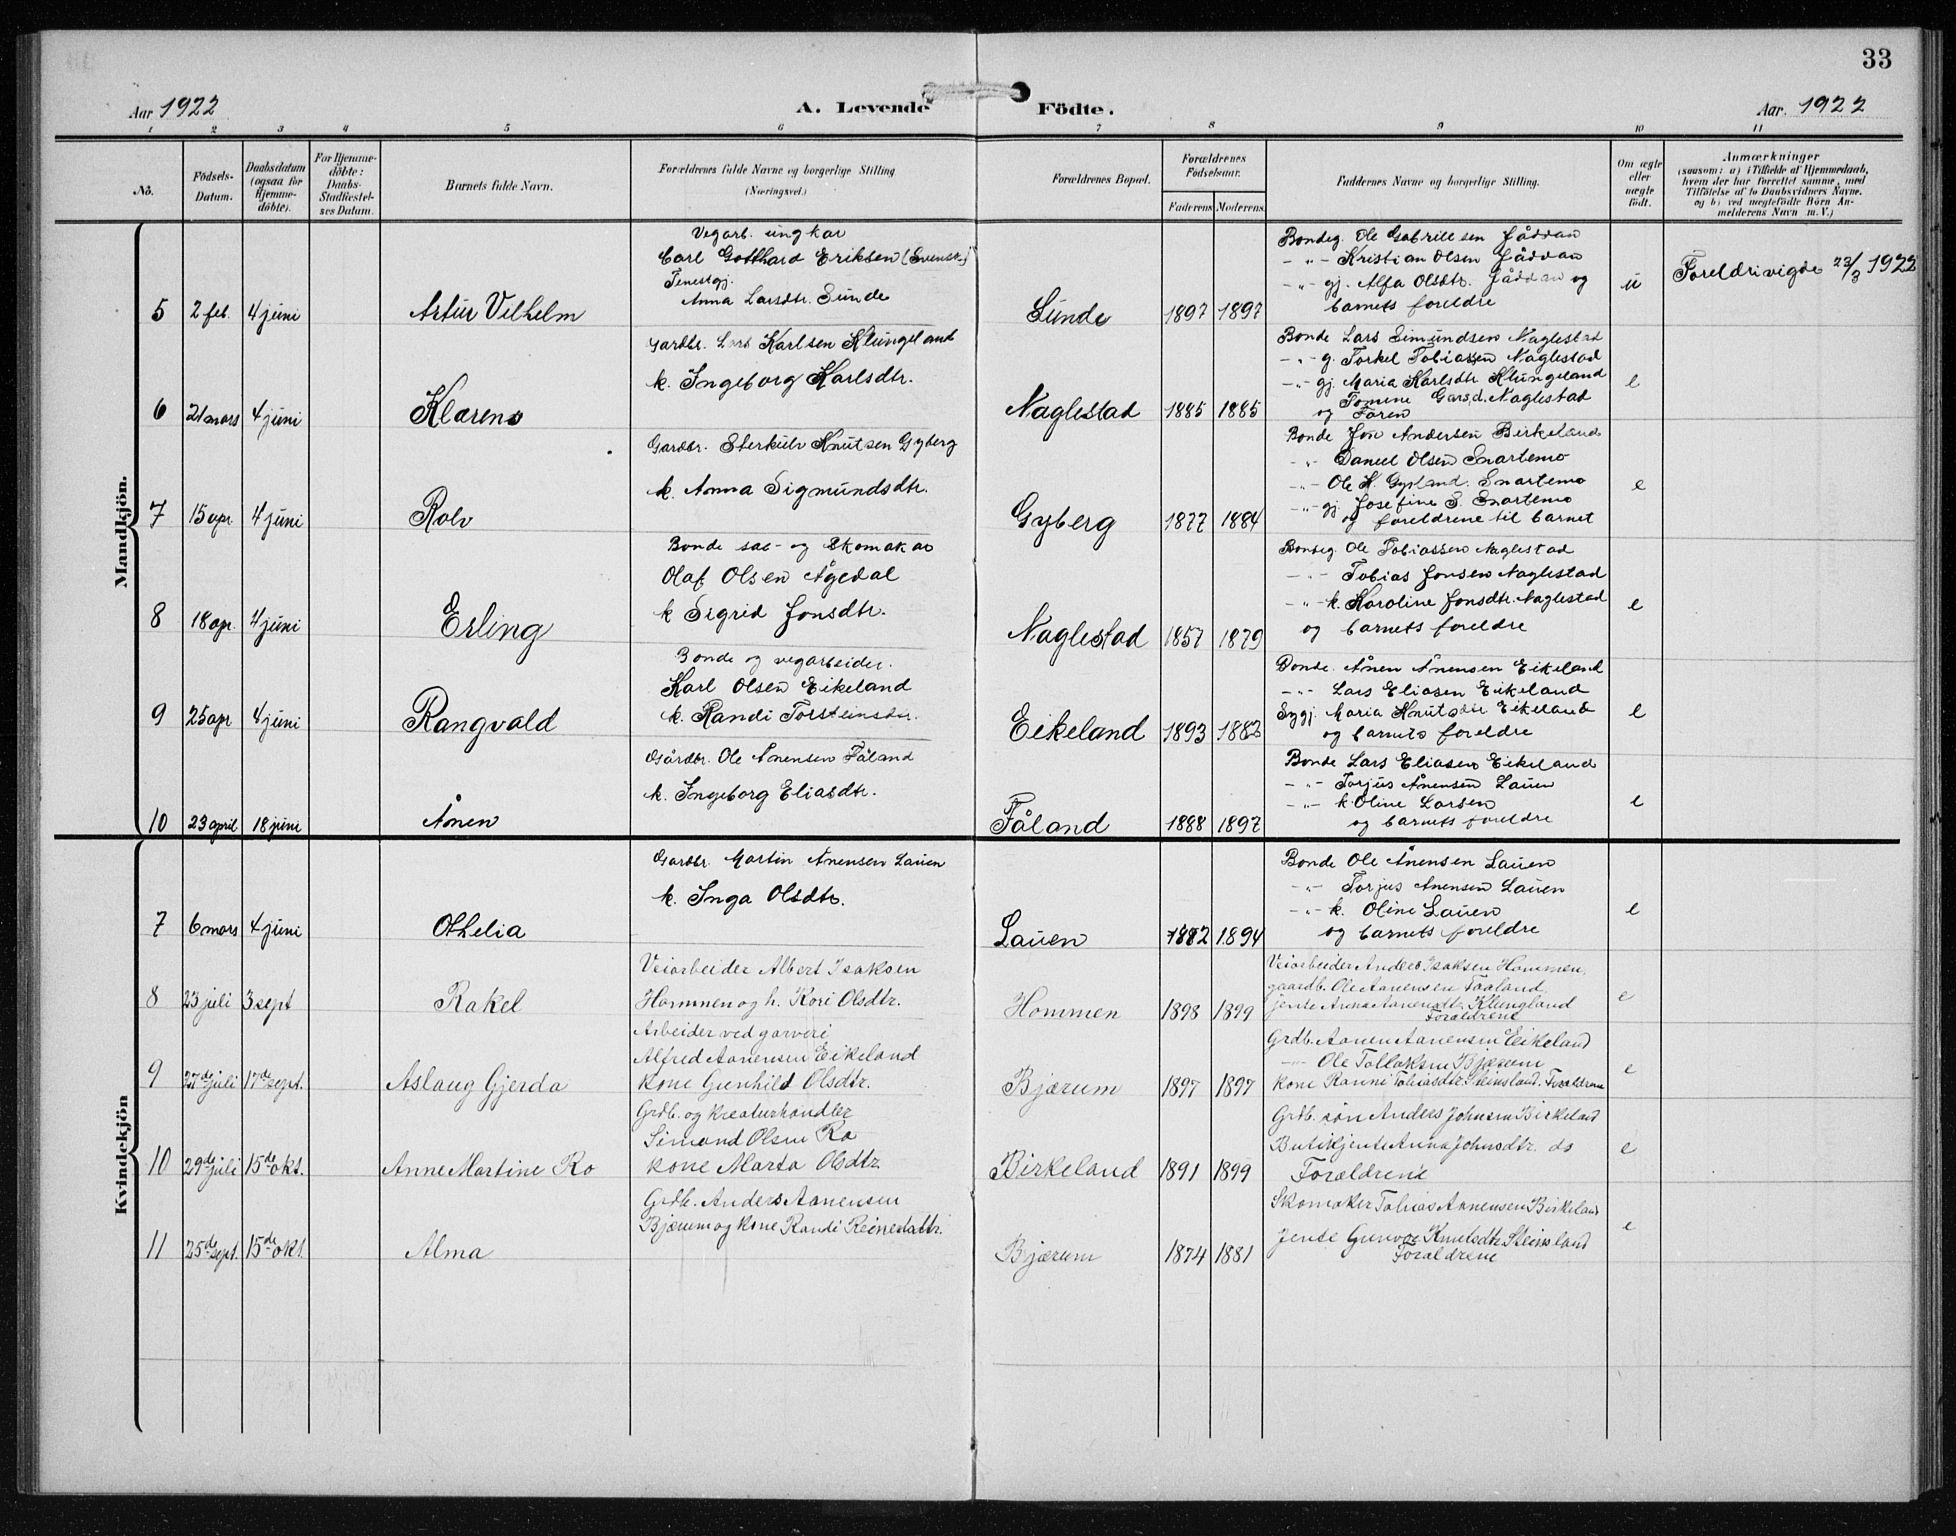 33
Aar 1922
A. Levende Födte.
Aar. 1922
1 2 3 4 5 6 7 8 9 10 11
No.
Födsels-
Datum.
Daabsdatum
(ogsaa for
Hjemme-
döbte).
For Hjemme-
döbte:
Daabs-
Stadfæstel-
ses Datum.
Barnets fulde Navn.
Forældrenes fulde Navne og borgerlige Stilling
(Næringsvei.)
Forældrenes Bopæl.
Forældrenes
Födselsaar.
Faderens Moderens
Faddernes Navne og borgerlige Stilling.
Om ægte
eller
uægte
født.
Anmærkninger
(saasom: a) i Tilfælde af Hjemmedaab,
hvem der har forrettet samme, med
Tilføielse af to Daabsvidners Navne.
og b) ved uægtefødte Börn An-
melderens Navn m. V.)
Mandkjön.
Vegarb. ungkar
Carl Gotthard Eriksen (Svensk)
Tenestgj.
Anna Larsdtr. Sunde
5 2 feb. 4 juni Artur Vilhelm
Sunde 1897 1897
Bondeg. Ole Gabrielsen Jåddan
-"- Kristian Olsen Jåddan
-"- gj. Alfa Olsdtr. Jåddan og
barnets foreldre
u
Foreldri vigde 23/3 1922
Gardbr. Lars Karlsen Klungeland
k. Ingeborg Karlsdtr.
6 21 mars 4 juni Klarens
Naglestad 1885 1885
Bonde Lars Simundsen Naglestad
-"- g. Torkel Tobiassen Naglestad
-"- gj. Maria Karlsdtr Klungeland
Tomine Garsd. Naglestad
og Faren
e
Gardbr. Sterkulv Knutsen Gyberg
k. Anna Sigmundsdtr.
7 15 apr. 4 juni Rolv
Gyberg 1877 1884
Bonde Jon Andersen Birkeland
-"- Daniel Olsen Snartemo
-"- Ole K. Gysland. Snartemo
-"- gj. Josefine S. Snartemo
og foreldrene til barnet
e
Bonde sal- og skomakar
Olaf Olsen Ågedal
k Sigrid Jonsdtr.
8 18 ap. 4 juni Erling
Naglestad 1857 1879
Bondeg. Ole Tobiassen Naglestad
-"- Tobias Jonsen Naglestad
-"- k. Karoline Jonsdtr. Naglestad
og barnets foreldre
e
Bonde og vegarbeider.
Karl Olsen Eikeland
k. Randi Torsteinsdtr.
9 25 apr 4 juni Rangvald
Eikeland 1893 1883
Bonde. Ånen Ånensen Eikeland
-"- Lars Eliasen Eikeland
Sygj. Maria Knutsdtr Eikeland
og barnets foreldre
e
Gårdbr. Ole Ånensen Fåland
k. Ingeborg Eliasdtr.
10 23 april 18 juni Ånen
Fåland 1888 1897
Bonde Lars Eliasen Eikeland
-"- Torjus Ånensen Lauen
-"- k Oline Larsen
og barnets foreldre
e
Kvindekjön
Gardbr. Martin Ånensen Lauen
k. Inga Olsdtr.
7 6 mars 4 juni Othelia
Lauen 1882 1894
Bonde Ole Ånensen Lauen
-"- Torjus Ånensen Lauen
-"- k. Oline Lauen
og barnets foreldre
e
Veiarbeider Albert Isaksen
Hommen og h. Kari Olsdtr.
8 23 juli 3 sept Rakel
Hommen 1898 1899
Veiarbeider Anders Isaksen Hommen,
gaardb. Ole Aanensen Faaland,
jente Anna Aanensdtr. Klungland
Forældrene
e
Arbeider ved garveri
Alfred Aanensen Eikeland
kone Gunhild Olsdtr.
9 27de juli 17de sept. Aslaug Gjerda
Bjærum 1897 1897
Grdb. Aanen Aanensen Eikeland
-"- Ole Tollaksen Bjærum
kone Ranni Tobiasdtr. Steinsland. Forældrene
e
Grdb. og kreaturhandler
Simond Olsen Ro
kone Marta Olsdtr
10 29de juli 15de okt. Anne Martine Ro
Birkeland 1891 1899
Grdb. søn Anders Johnsen Birkeland
Butikjente Anna Johnsdtr. ds
Forældrene
e
Grdb. Anders Aanensen
Bjærum og kone Randi Reinertsdtr.
11 25de sept. 15de okt. Alma
Bjærum 1874 1881
Skomaker Tobias Aanensen Birkeland
Jente Gunvor Knutsdtr Steinsland
Forældrene
e